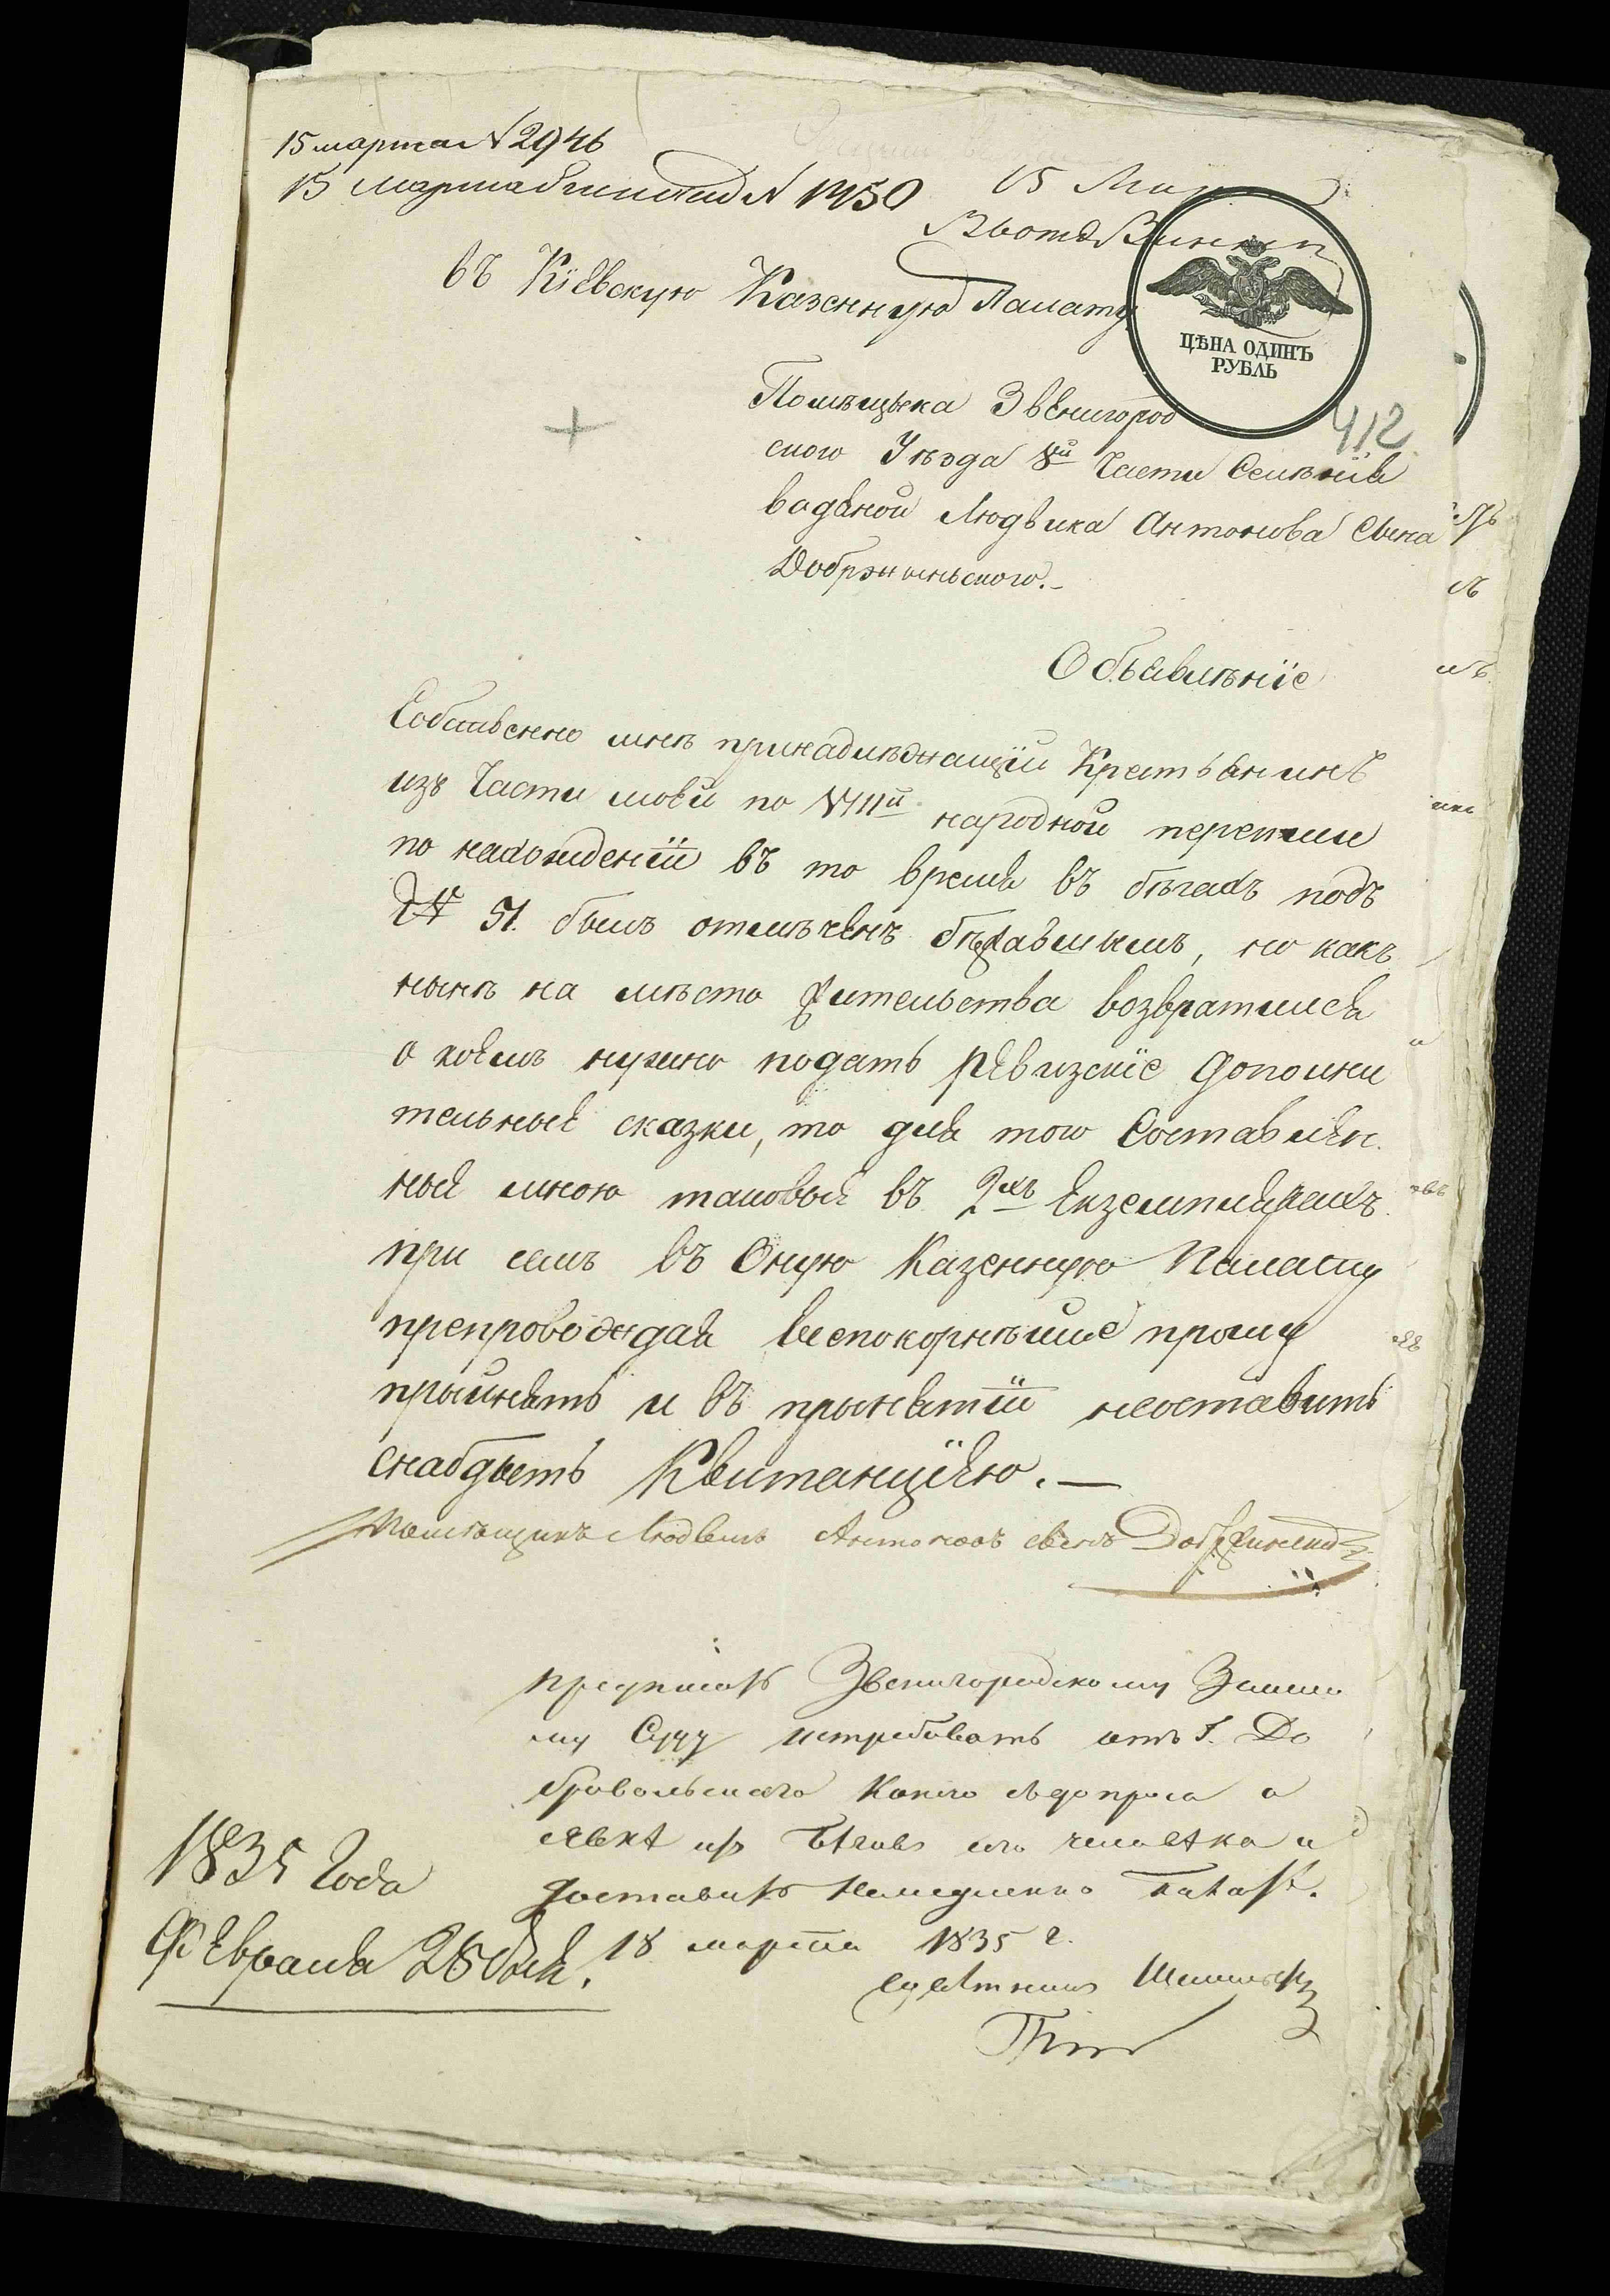 15 марта N 2946
15 марта N 1450
15 Мар
въ Кіевскую Казенную Палату
ЦѢНА ОДИНЪ
РУБЛЬ
412
Помѣщыка Звенигород
ского Уѣзда 8й Части Селѣнія
Людвика Антонова Сына
Добржыньского.-
Объявлѣніе
Собственно мнѣ принадлѣжащій Крестьянинъ
изъ Части моей по VIIIй народной перепыси
по нахожденіи въ то время въ бѣгахъ подъ
N 51. былъ отмѣченъ бѣжавшымъ, но какъ
нынѣ на мѣсто жительства возвратился
о коемъ нужно подать ревизскіе дополни
тельныя сказки, то для того Составлен
ныя мною таковыя въ 2хъ Екземплярахъ
при семъ въ Оную Казенную Палату
препровождая всепокорнѣйше прошу
прыйнять и въ прынятіи неоставить
снабдыть Квитанціею. —
Помѣщикъ Людвикъ Антоновъ сынъ
предписать Звенигородскому Земско
му Суду истребовать отъ Г. До
бровольскаго
явкѣ изъ бѣговъ его человѣка и
доставить немедленно
18 марта 1835 г.
1835 Года
Февраля 26 дня.